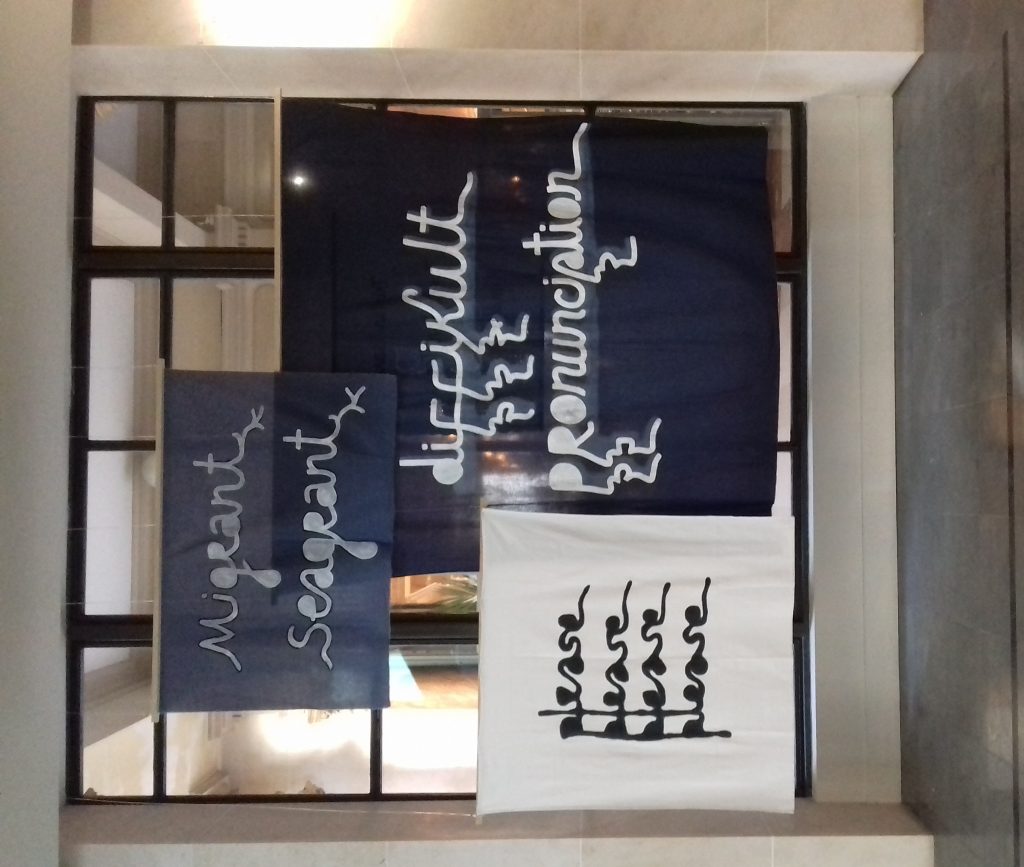 Migrant
Seagrant
diffikult
pRonunciation
please
please
please
please